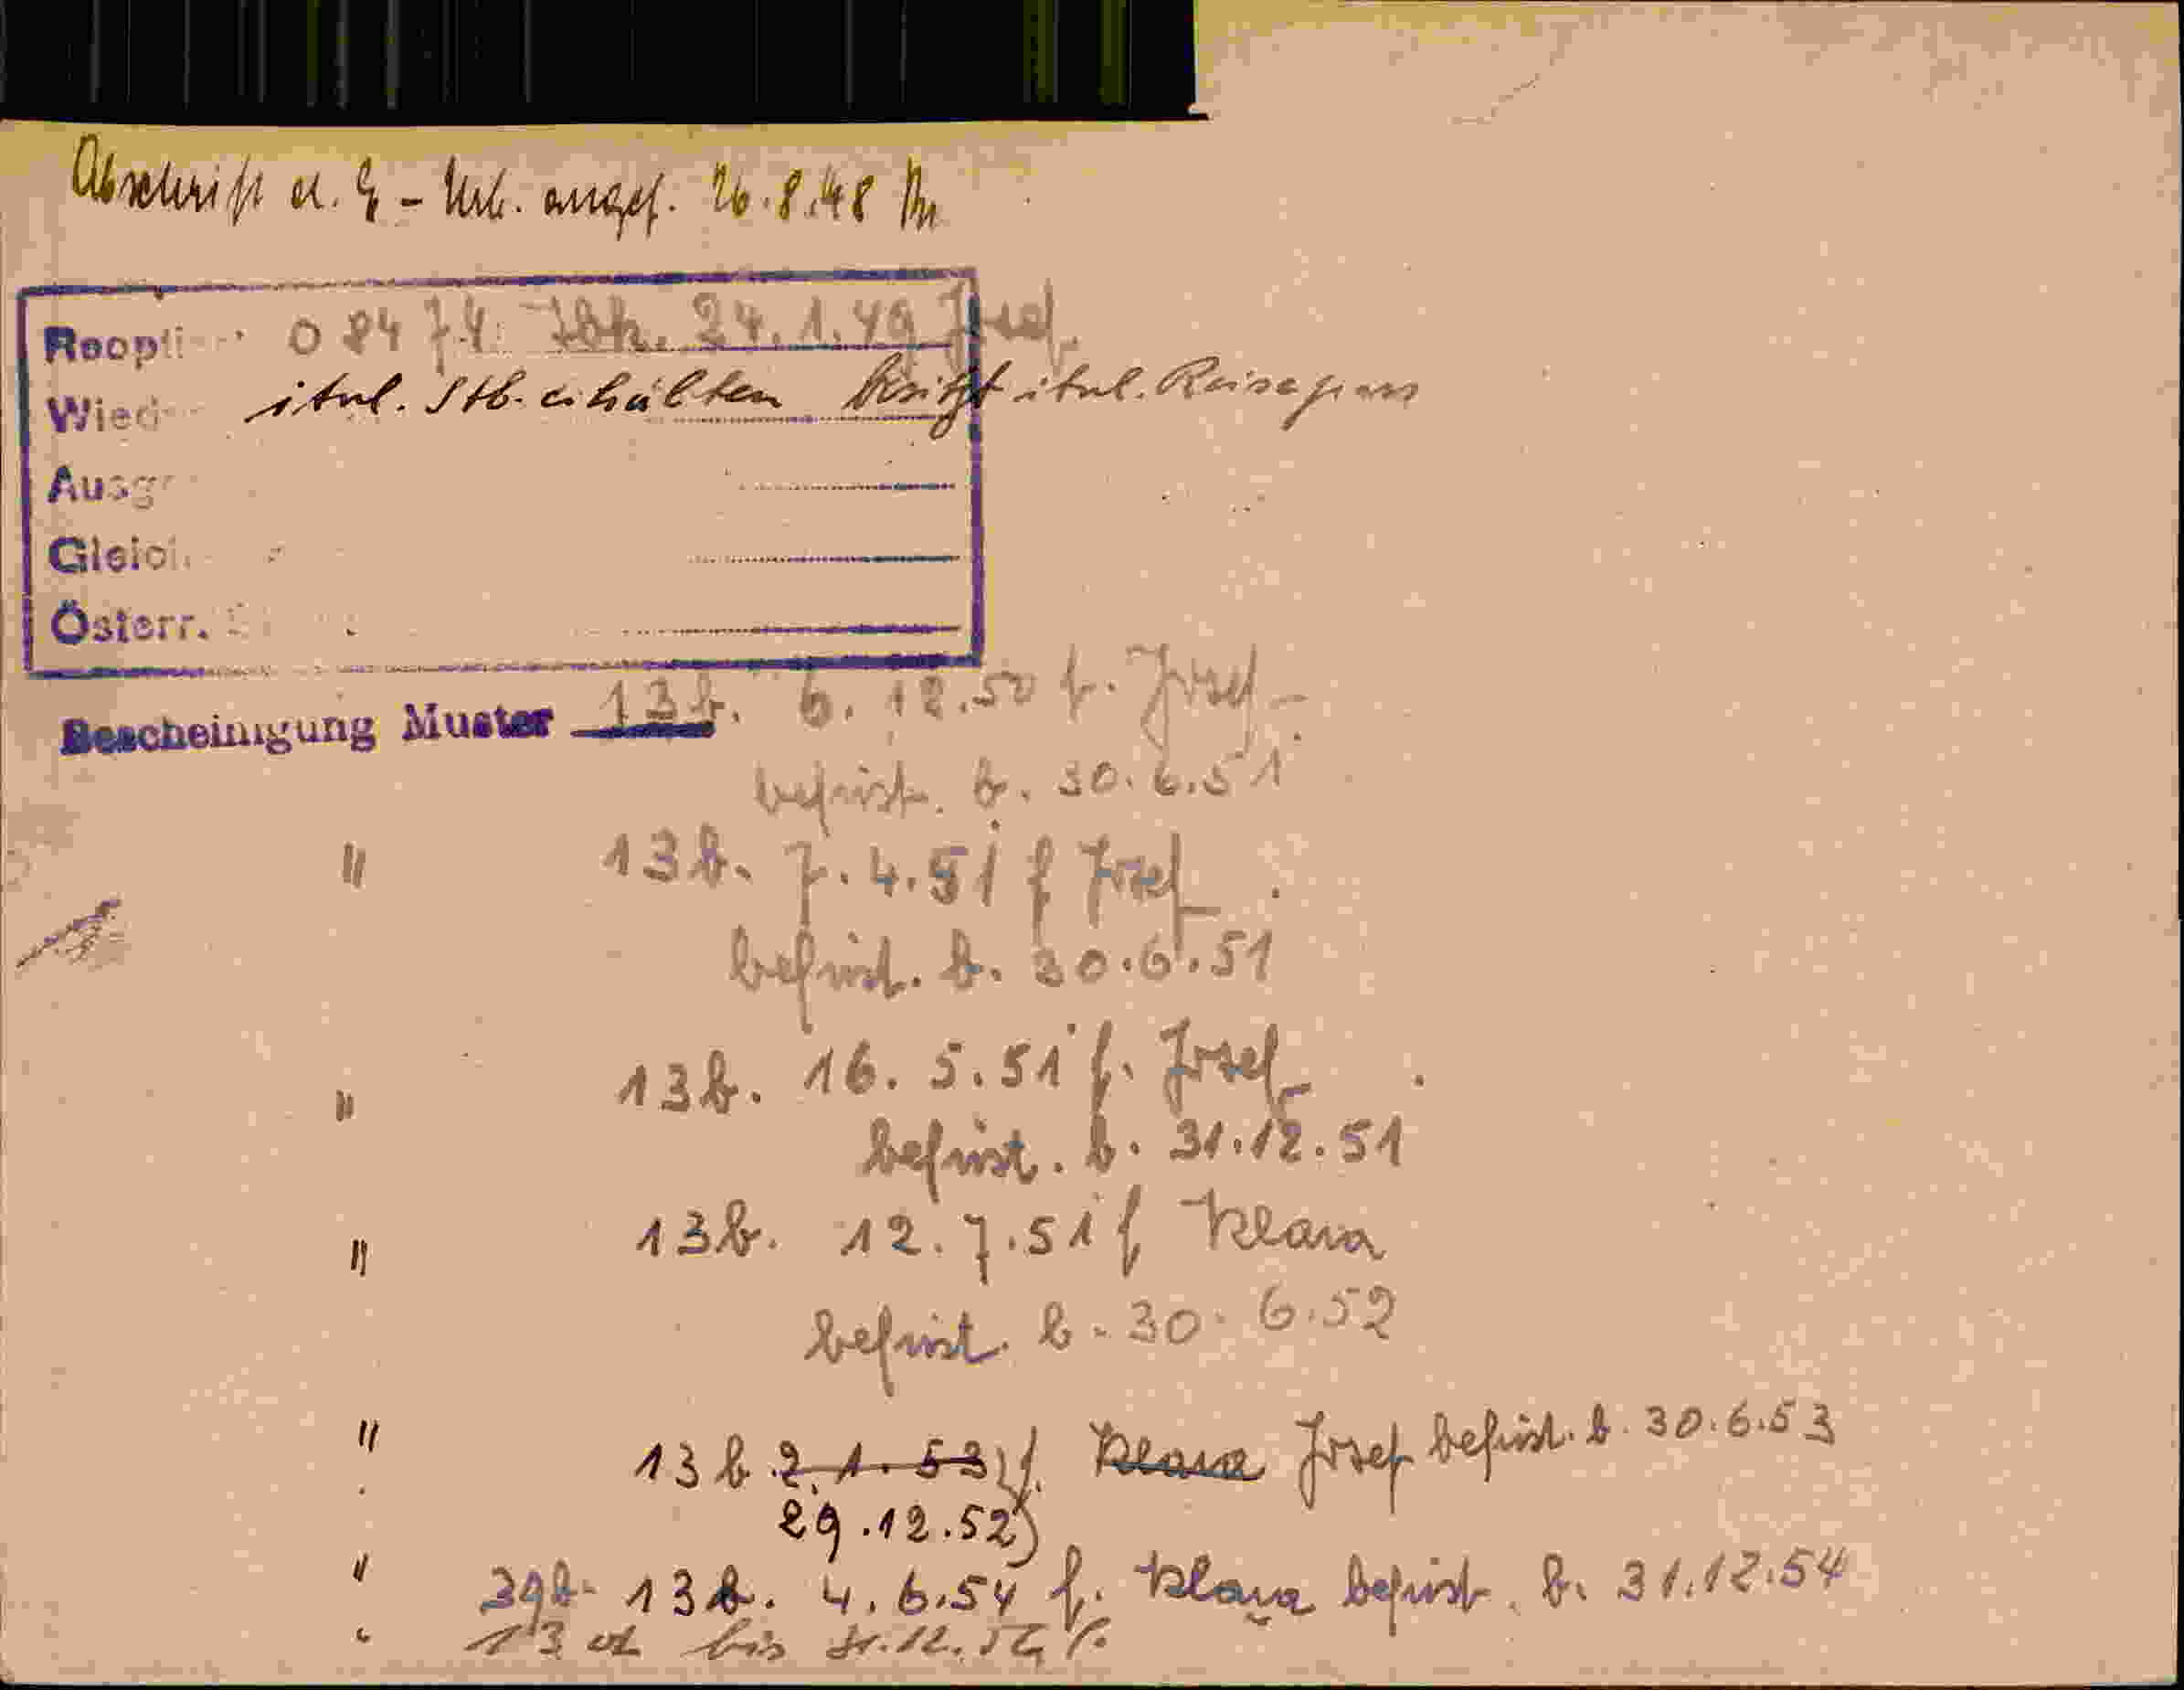 Abschrift d. E - Urk. angef. 26.8.48
Reoptier 0 8474 Ibk. 24.1.49 Josef.
Wied ital. Stb. erhalten besitzt ital. Reisepass
Ausg
Gleich
Österr.
Bescheinigung Muster 13b. 6.12.50 f. Josef
befrist. b. 30.6.51
" 13b. 7.4.51 f Josef
befrist. b. 30.6.51
" 13b. 16.5.51 f. Josef
befrist. b. 31.12.51
" 13b. 12.7.51 f Klara
befrist. b. 30.6.52
" 13b 2.1.53 f. Klara Josef befrist. b. 30.6.53
29.12.52)
" 39b- 13b. 4.6.54 f. Klara befrist. b. 31.12.54
" 13 bis 31.12.